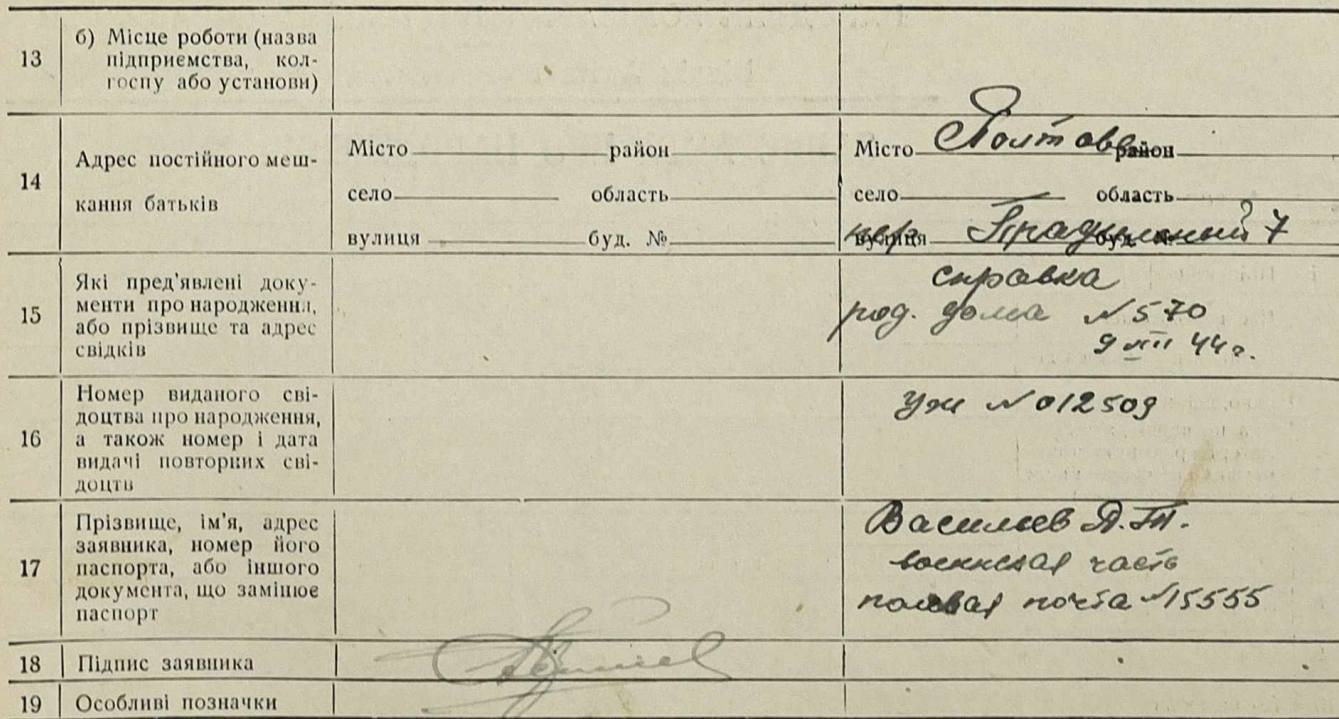 13
б) Місце роботи (назва
підприємства, кол-
госпу або установи)
14
Адрес постійного меш-
кання батьків
Місто район
село область
вулиця буд. №
Місто Полтава район
село область
вулиця пер. буд. № 7
15
Які пред'явлені доку-
менти про народження,
або прізвище та адрес
свідків
справка
род. дома №570
9 VIII 44 г.
16
Номер виданого сві-
доцтва про народження,
а також номер і дата
видачі повторних сві-
доцтв
УЖ №012509
17
Прізвище, ім'я, адрес
заявника, номер його
паспорта, або іншого
документа, що замінює
паспорт
Васильев
воинская часть
полевая почта №15555
18
Підпис заявника
19
Особливі позначки